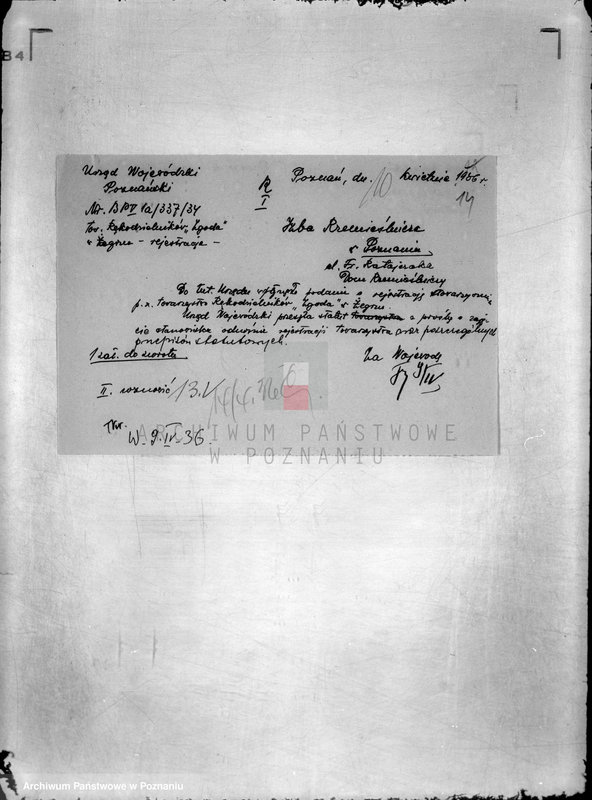 84
Urząd Wojewódzki
Poznański
Nr. BPV 1a/337/34
Tow. Rękodzielników „Zgoda”
w Żegrzu - rejestracja -
R
I
Poznań, dn. 10 kwietnia 1936 r.
14
Izba Rzemieślnicza
w Poznaniu
ul. Fr. Ratajczaka
Dom Rzemieślniczy
Do tut. Urzędu wpłynęło podanie o rejestrację stowarzyszenia
p.n. towarzystwo Rękodzielników „Zgoda” w Żegrzu.
Urząd Wojewódzki przesyła statut towarzystwa z prośbą o zaję-
cie stanowiska odnośnie rejestracji towarzystwa oraz poszczególnych
przepisów statutowych.
1 zał. do zwrotu
Za Wojewodę
9/IV
II. 13.V
14/4.
W. 9.IV.36
ARCHIWUM PAŃSTWOWE
W POZNANIU
Archiwum Państwowe w Poznaniu